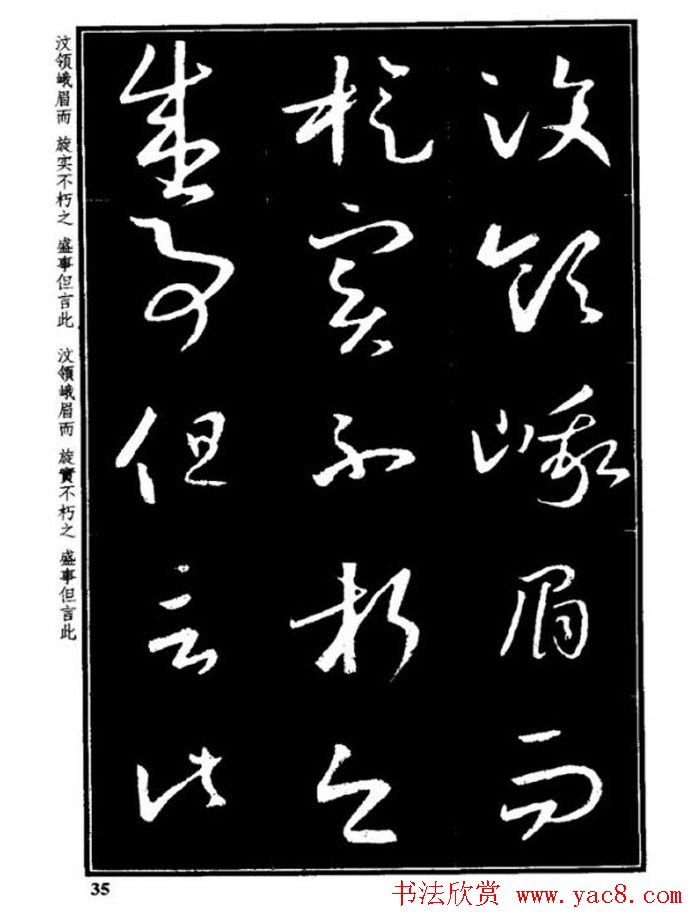 汶領峨眉而
旋实不朽之
盛事但言此
汶领峨眉而 旋实不朽之 盛事但言此
汶領峨眉而 旋實不朽之 盛事但言此
35
书法欣赏 www.yac8.com